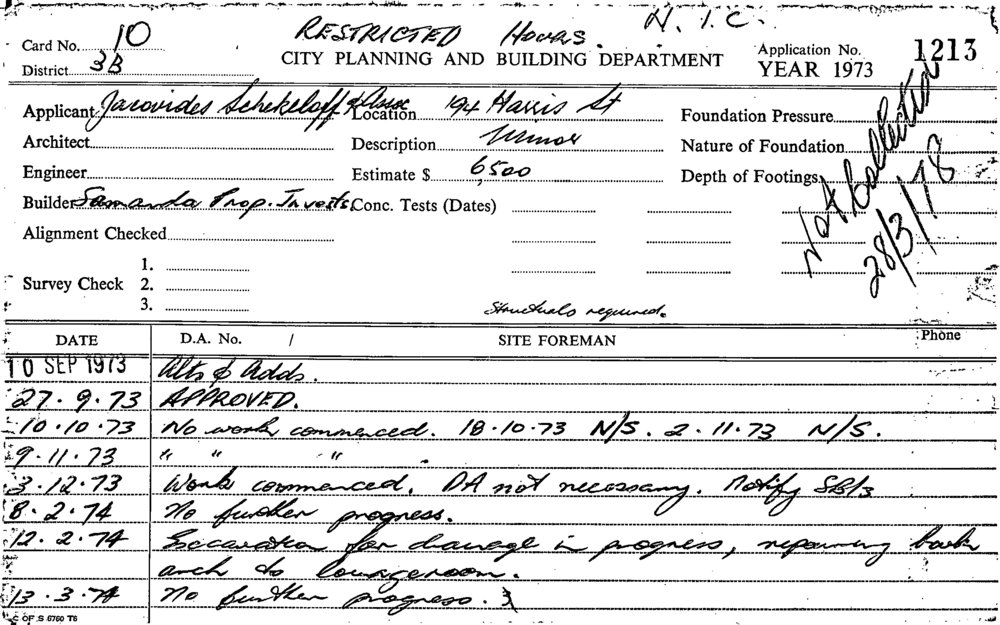 RESTRICTED HOURS. N.I.C.
Card No. 10
CITY PLANNING AND BUILDING DEPARTMENT
Application No. 1213
YEAR 1973
District 3B
Applicant Jacovides Schekeloff & Location 194 Harris St
Foundation Pressure
Architect
Description Minor
Nature of Foundation
Engineer
Estimate $ 6,500
Depth of Footings
Builder Samanda Prop. Invests. Conc. Tests (Dates)
Not Collected
28/3/78
Alignment Checked
Survey Check
1.
2.
3.
Structurals required.
DATE D.A. No. / SITE FOREMAN Phone
10 SEP 1973 Alts & Adds.
27.9.73 APPROVED.
10.10.73 No work commenced. 18.10.73 N/S. 2.11.73 N/S.
9.11.73 " " "
3.12.73 Work commenced. DA not necessary. Notify SB/3
8.2.74 No further progress.
12.2.74 Excavation for drainage in progress, repairing back
arch to loungeroom.
13.3.74 No further progress.
C OF S 6760 T6